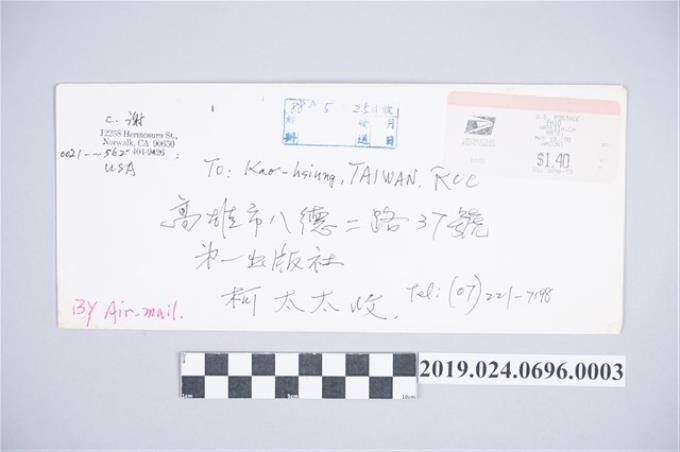 C. 謝
12258 Hermosura St.,
Norwalk, CA 90650
404-9426
USA
88 5 25 收
To: Kao-hsiung, TAIWAN, ROC
高雄市八德二路37號
第一出版社
柯太太收.
Tel: (07) 221-7198
BY Air-mail.
U.S. POSTAGE
PAID
AMOUNT
$1.40
2019.024.0696.0003